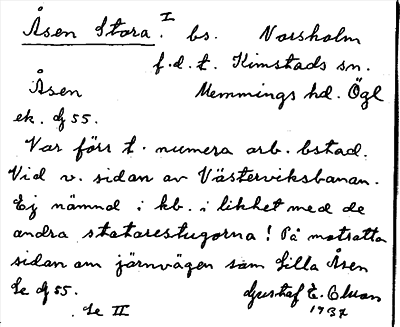 Åsen Stora. I bs. Norsholm
f.d.t. Kimstads sn.
Åsen Memmings hd. Ögl
ek. dj 55.
Var förr t. numera arb. bstad.
Vid v. sidan av Västerviksbanan.
Ej nämnd i kb. i likhet med de
andra statarestugorna! På motsatta
sidan om järnvägen som Lilla Åsen
Se dj 55. Gustaf E. Olson
Se II 1937